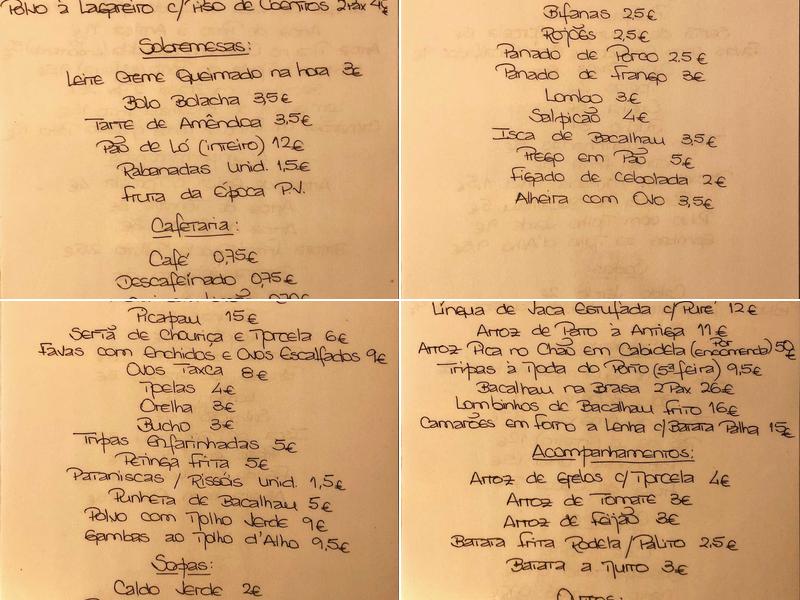 Polvo à Lagareiro c/ Piso de Coentros 2 Pax
Sobremesas:
Leite Creme Queimado na hora 3€
Bolo Bolacha 3,5€
Tarte de Amêndoa 3,5€
Pão de Ló (inteiro) 12€
Rabanadas Unid. 1,5€
Fruta da Época P.V.
Cafetaria:
Café 0,75€
Descafeinado 0,75€
Bifanas 2,5€
Rojões 2,5€
Panado de Porco 2,5€
Panado de Frango 3€
Lombo 3€
Salpicão 4€
Isca de Bacalhau 3,5€
Prego em Pão 5€
Fígado de Cebolada 2€
Alheira com Ovo 3,5€
Picapau 15€
Sertã de Chouriça e Morcela 6€
Favas com Enchidos e Ovos Escalfados 9€
Ovos Taxca 8€
Moelas 4€
Orelha 3€
Bucho 3€
Tripas Enfarinhadas 5€
Petinga Frita 5€
Pataniscas / Rissóis Unid. 1,5€
Punheta de Bacalhau 5€
Polvo com Molho Verde 9€
Gambas ao Molho d'Alho 9,5€
Sopas:
Caldo Verde 2€
Língua de Vaca Estufada c/ Puré 12€
Arroz de Pato à Antiga 11€
Arroz Pica no Chão em Cabidela (Por encomenda) 50€
Tripas à Moda do Porto (5ª feira) 9,5€
Bacalhau na Brasa 2 Pax 26€
Lombinhos de Bacalhau Frito 16€
Camarões em Forno a Lenha c/ Batata Palha 15€
Acompanhamentos:
Arroz de Grelos c/ Morcela 4€
Arroz de Tomate 3€
Arroz de Feijão 3€
Batata Frita Rodela / Palito 2,5€
Batata a Murro 3€